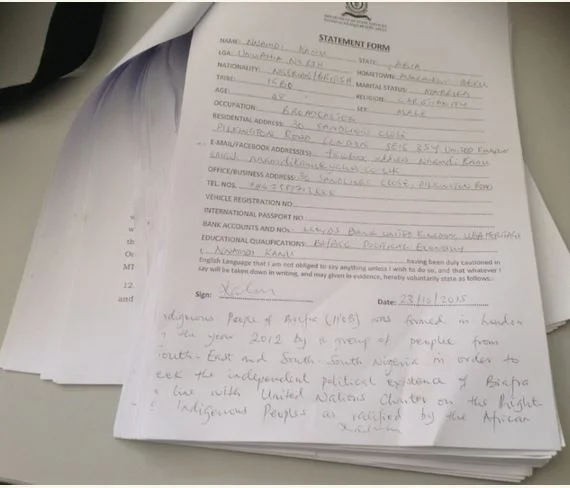 DEPARTMENT OF STATE SERVICES
STATEMENT FORM
NAME: NNAMDI KANU STATE: ABIA
LGA: UMUAHIA NORTH HOMETOWN:
NATIONALITY: NIGERIAN/BRITISH MARITAL STATUS: MARRIED
TRIBE: IGBO RELIGION: CHRISTIANITY
AGE: 48 SEX: MALE
OCCUPATION: BROADCASTER
RESIDENTIAL ADDRESS: CLOSE
ROAD LONDON UNITED
E-MAIL/FACEBOOK ADDRESS(ES): Nnamdi Kanu
OFFICE/BUSINESS ADDRESS: CLOSE,
TEL. NOS.
VEHICLE REGISTRATION NO
INTERNATIONAL PASSPORT NO
BANK ACCOUNTS AND NO.: LLOYDS BANK UNITED KINGDOM
EDUCATIONAL QUALIFICATIONS: POLITICAL ECONOMY
I NNAMDI KANU having been duly cautioned in
English Language that I am not obliged to say anything unless I wish to do so, and that whatever I
say will be taken down in writing, and may given in evidence, hereby voluntarily state as follows:-
Sign: Date: 23/10/2015
ndigenous People of Biafra (IPOB) was formed in London
year 2012 by a group of people from
outh-East and South-South Nigeria in order to
eek the independent political existence of Biafra
line with United Nations Charter on the Right
Indigenous Peoples as ratified by the African
w
th
On
MT
12
and